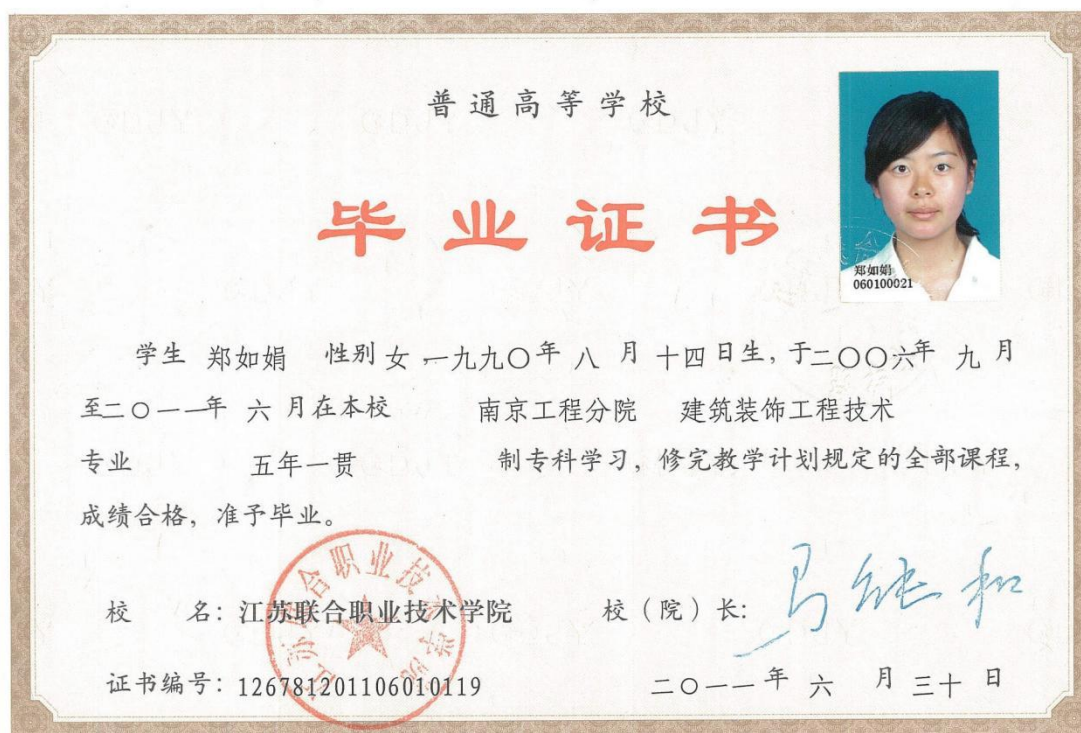 普通高等学校
毕业证书
郑如娟
060100021
学生 郑如娟 性别 女，一九九〇年 八 月 十四日生，于二〇〇六年 九 月
至二〇一一年 六 月在本校 南京工程分院 建筑装饰工程技术
专业 五年一贯 制专科学习，修完教学计划规定的全部课程，
成绩合格，准予毕业。
江苏联合职业技术学院
校 名：江苏联合职业技术学院 校（院）长：马能和
证书编号：126781201106010119 二〇一一年 六 月 三十 日